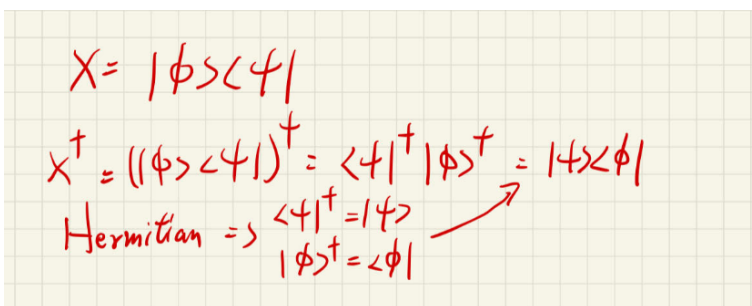 X = |ϕ><ψ|
X† = (|ϕ><ψ|)† = <ψ|† |ϕ>† = |ψ><ϕ|
Hermitian => <ψ|† = |ψ>
|ϕ>† = <ϕ|